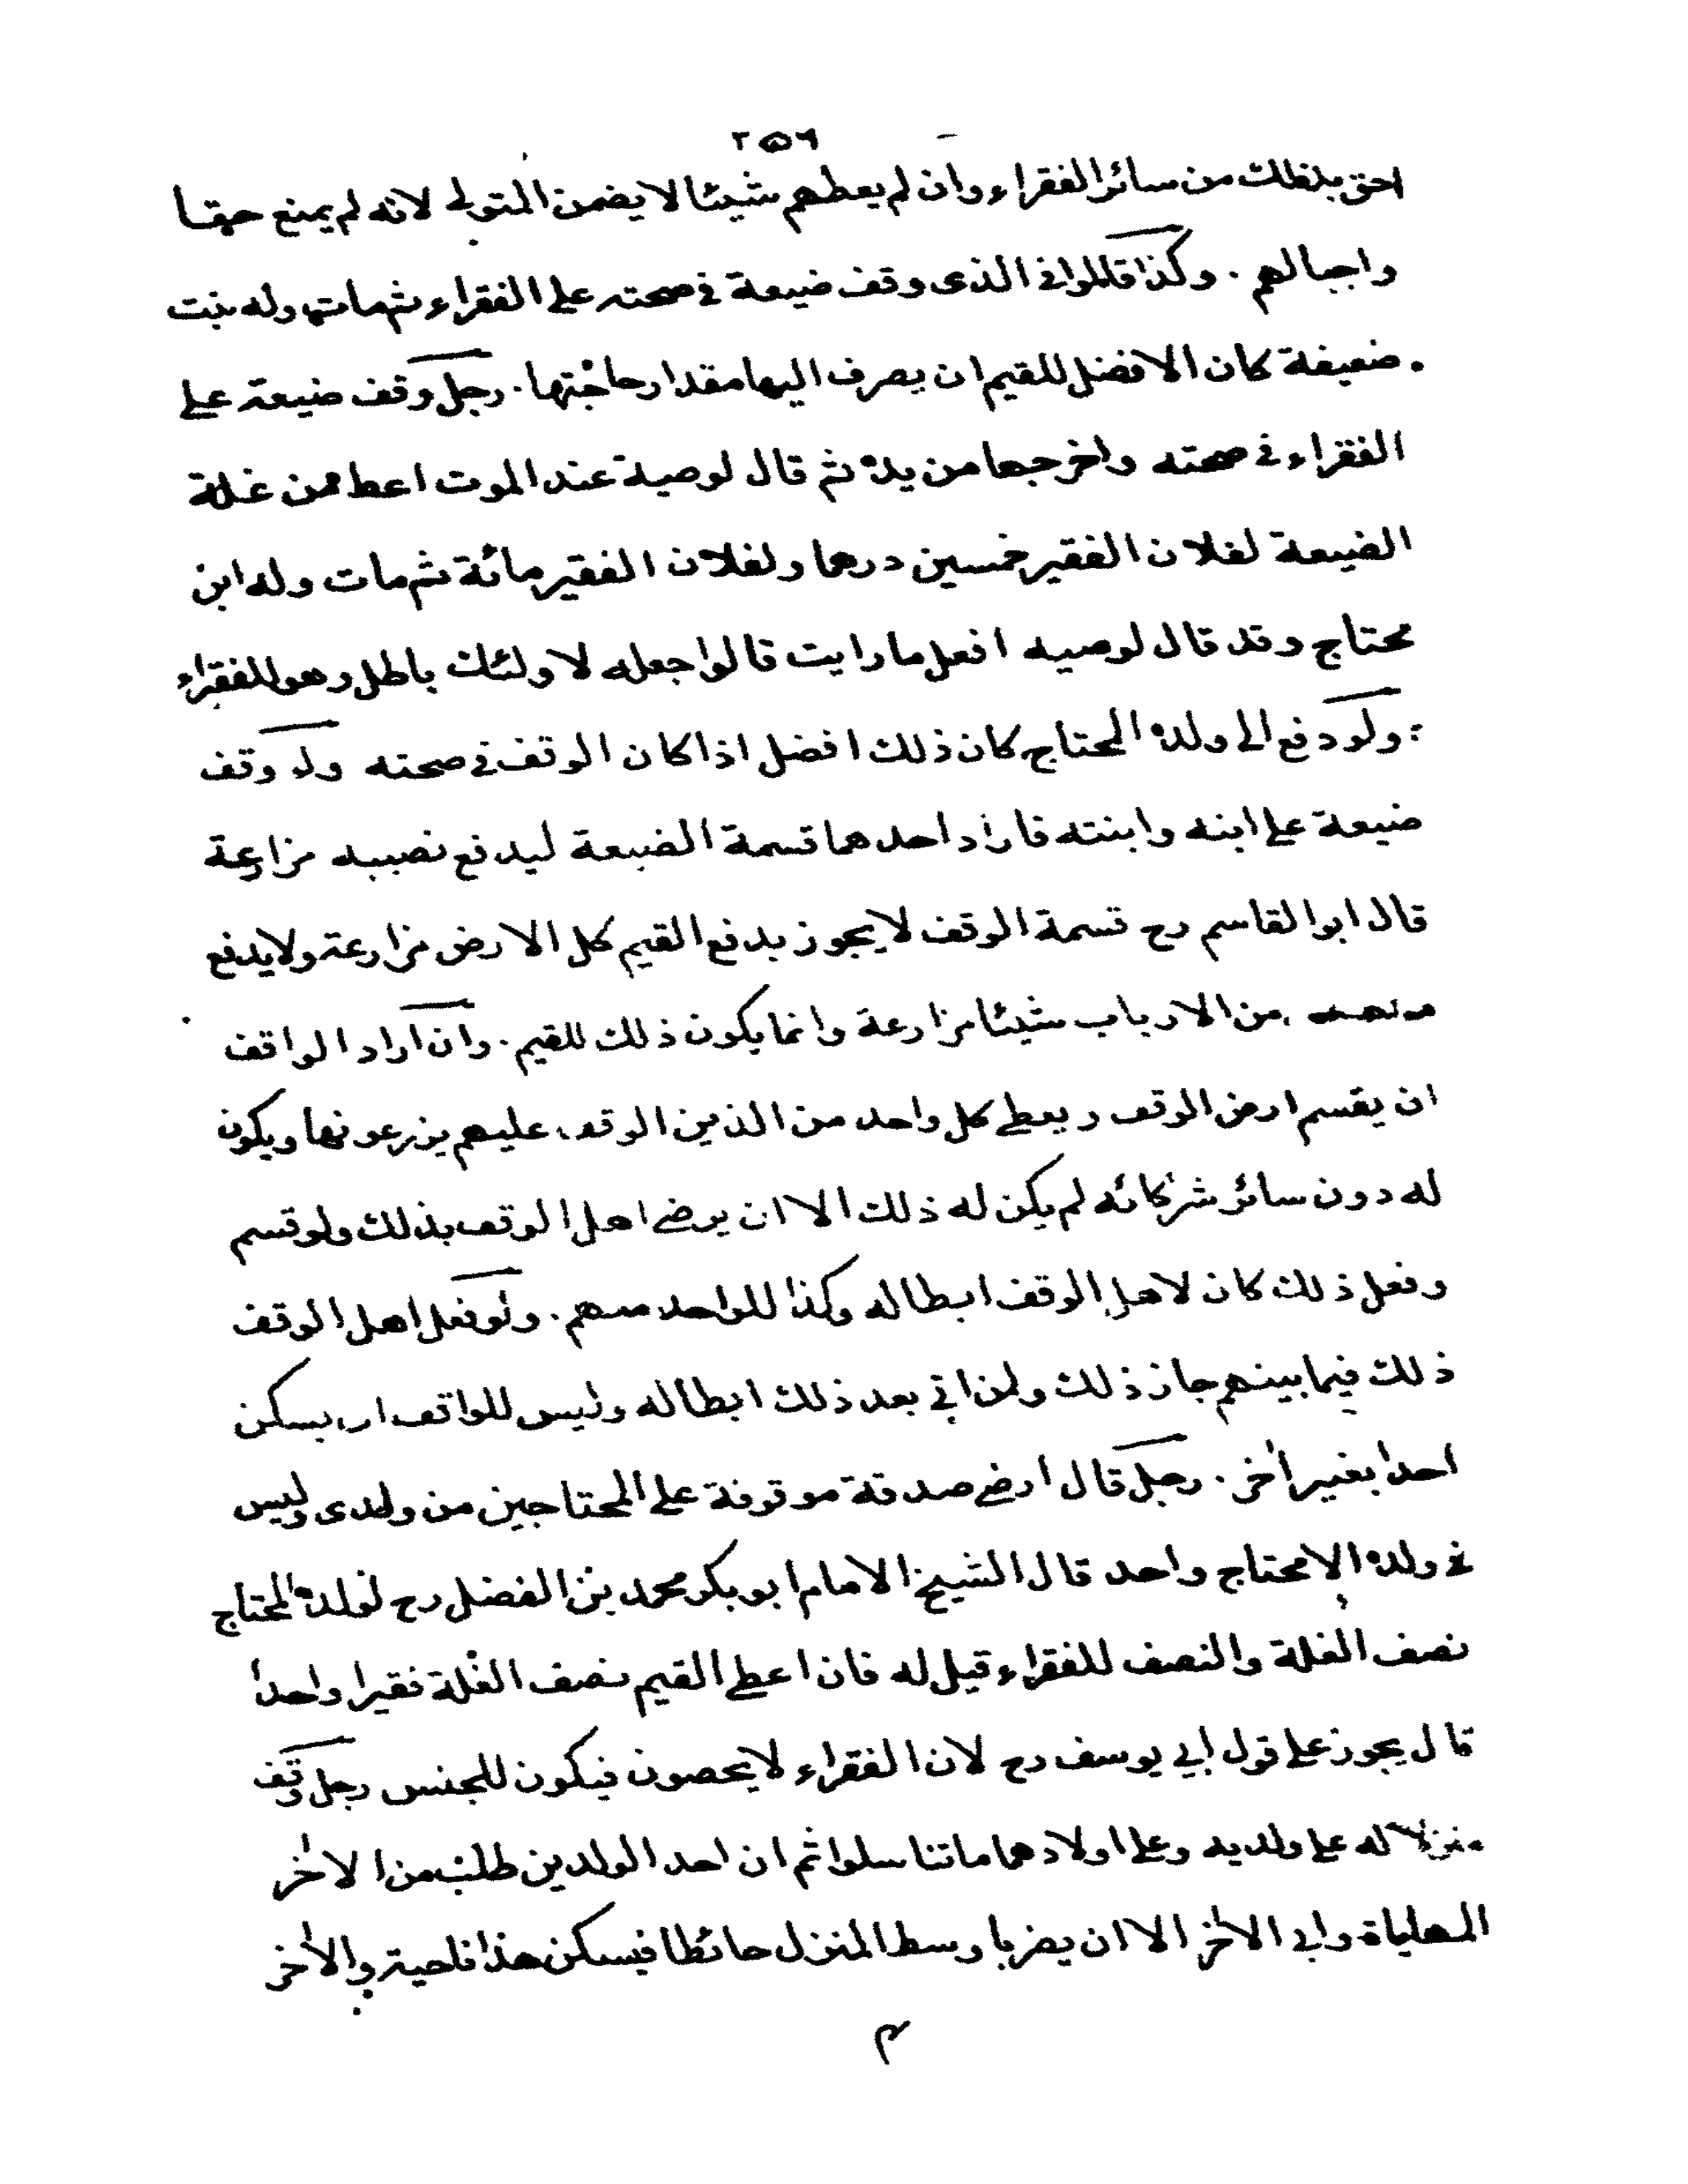 ٢٥٦
احق بذلك من سائر الفقراء وان لم يعطهم شيئا لا يضمن المتولي لانه لم يمنع حقا
واجبا لهم . وكذا قالوا في الذى وقف ضيعة في صحته على الفقراء ثم مات وله بنت
ضعيفة كان الافضل للقيم ان يصرف اليها مقدار حاجتها . رجل وقف ضيعة على
الفقراء في صحته واخرجها من يده ثم قال لوصية عند الموت اعط من غلة
الضيعة لفلان الفقير خمسين درهما ولفلان الفقير مائة ثم مات وله ابن
محتاج وقد قال لوصيه افعل ما رايت قالوا جعله لاولئك باطل وهو للفقراء
ولو دفع الى ولده المحتاج كان ذلك افضل اذا كان الوقف في صحته ولو وقف
ضيعة على ابنه وابنته فاراد احدهما قسمة الضيعة ليدفع نصيبه مزارعة
قال ابو القاسم رح قسمة الوقف لا يجوز يدفع القيم كل الارض مزارعة ولا يدفع
من الارباب شيئا مزارعة وانما يكون ذلك للقيم . وان اراد الواقف
ان يقسم ارض الوقف ويعطي كل واحد من الذين الوقف عليهم يزرعونها ويكون
له دون سائر شركائه لم يكن له ذلك الا ان يرضى اهل الوقف بذلك ولو قسم
وفعل ذلك كان لاهل الوقف ابطاله وكذا للواحد منهم . ولو فعل اهل الوقف
ذلك فيما بينهم جاز ذلك ولمن ابى بعد ذلك ابطاله وليس للواقف ان يسكن
احدا بغير اخر . رجل قال ارضي صدقة موقوفة على المحتاجين من ولدى وليس
في ولده الا محتاج واحد قال الشيخ الامام ابو بكر محمد بن الفضل رح لولده المحتاج
نصف الغلة والنصف للفقراء قيل له فان اعطى القيم نصف الغلة فقيرا واحدا
قال يجوز على قول ابي يوسف رح لان الفقراء لا يحصون فيكون للجنس رجل وقف
منزلا له على ولديه وعلى اولادهما ما تناسلوا ثم ان احد الولدين طلب من الاخر
المهاياة وابى الاخر الا ان يضربا وسط المنزل حائطا فيسكن هذا ناحية والاخر